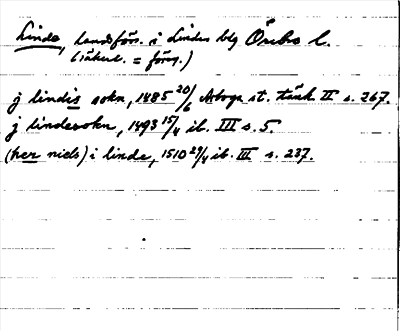 Linde, landsförs. i Lindes blg Örebro l.
(säkert. = förs.)
j lindis sokn, 1485 20/6 Arboga st. tänk. II s. 267.
j lindesokn, 1493 15/4 ib. III s. 5.
(her niels) i linde, 1510 29/4 ib. III s. 237.